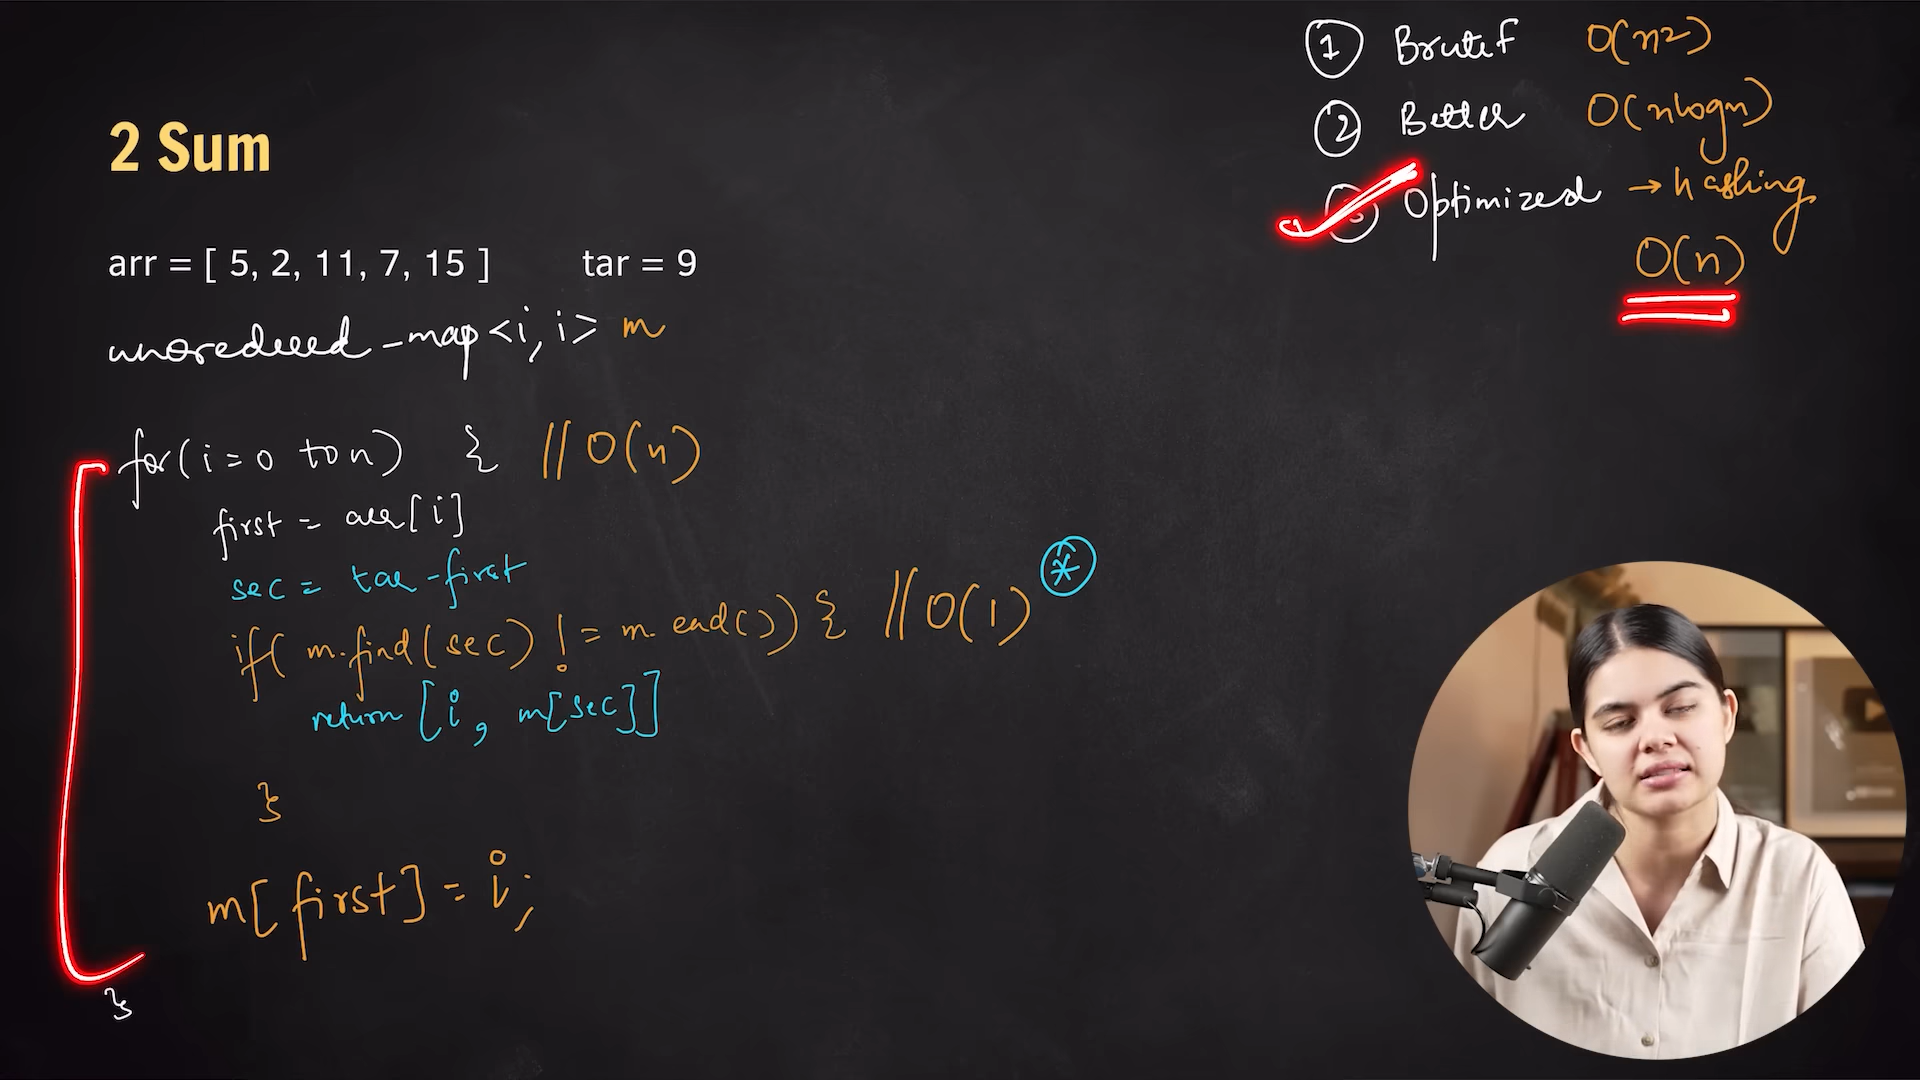 2 Sum
arr = [ 5, 2, 11, 7, 15 ] tar = 9
unoredered_map<i, i> m
for(i=0 to n) { //O(n)
first = arr[i]
sec = tar-first
if( m.find(sec) != m.end()) { //O(1) *
return [i, m[sec]]
}
m[first] = i;
}
1 Brutef O(n2)
2 Better O(nlogn)
3 Optimized → hashing
O(n)